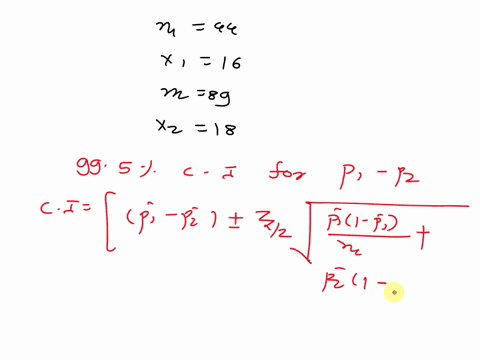 n₁ = 44
x₁ = 16
n₂ = 89
x₂ = 18
99.5% C.I for p₁ - p₂
C.I = [ (p̂₁ - p̂₂) ± Z_{α/2} √ p̂₁(1-p̂₁)/n₁ +
p̂₂(1 -